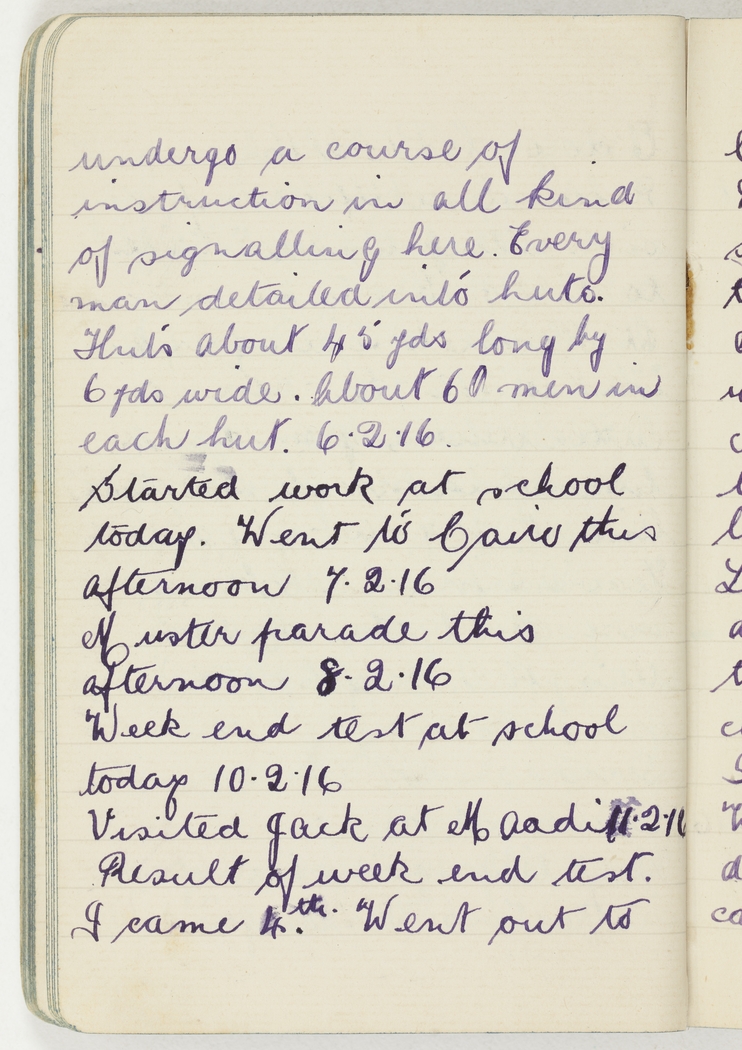 undergo a course of
instruction in all kind
of signalling here. Every
man detailed into huts.
Huts about 45 yds long by
6 yds wide. About 60 men in
each hut. 6.2.16.
Started work at school
today. Went to Cairo this
afternoon 7.2.16
Muster parade this
afternoon 8.2.16
Week end test at school
today 10.2.16
Visited Jack at Maadi 11.2.16
Result of week end test.
I came 4.th. Went out to